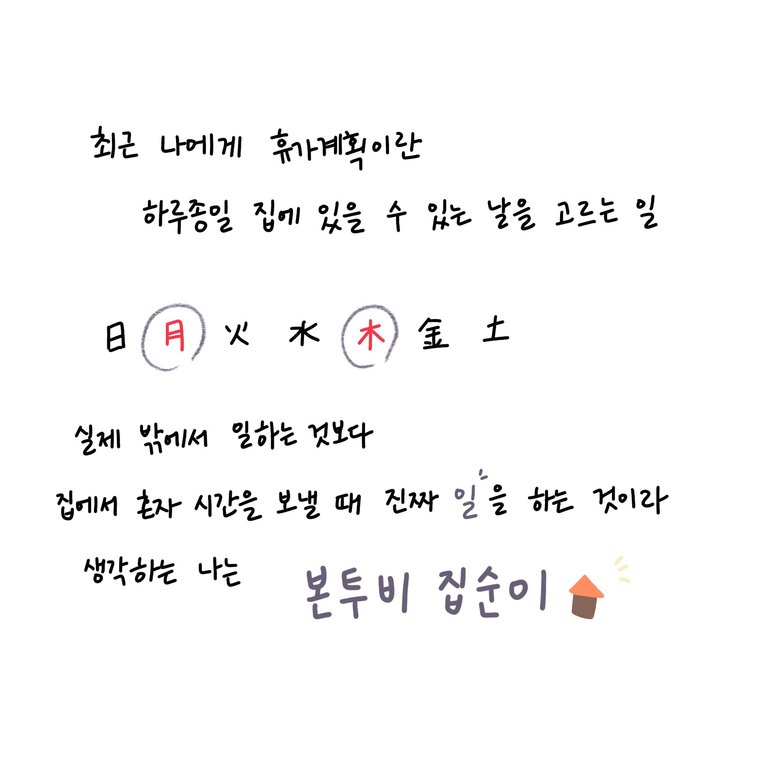 최근 나에게 휴가계획이란
하루종일 집에 있을 수 있는 날을 고르는 일
日 月 火 水 木 金 土
실제 밖에서 일하는 것보다
집에서 혼자 시간을 보낼 때 진짜 일을 하는 것이라
생각하는 나는
본투비 집순이